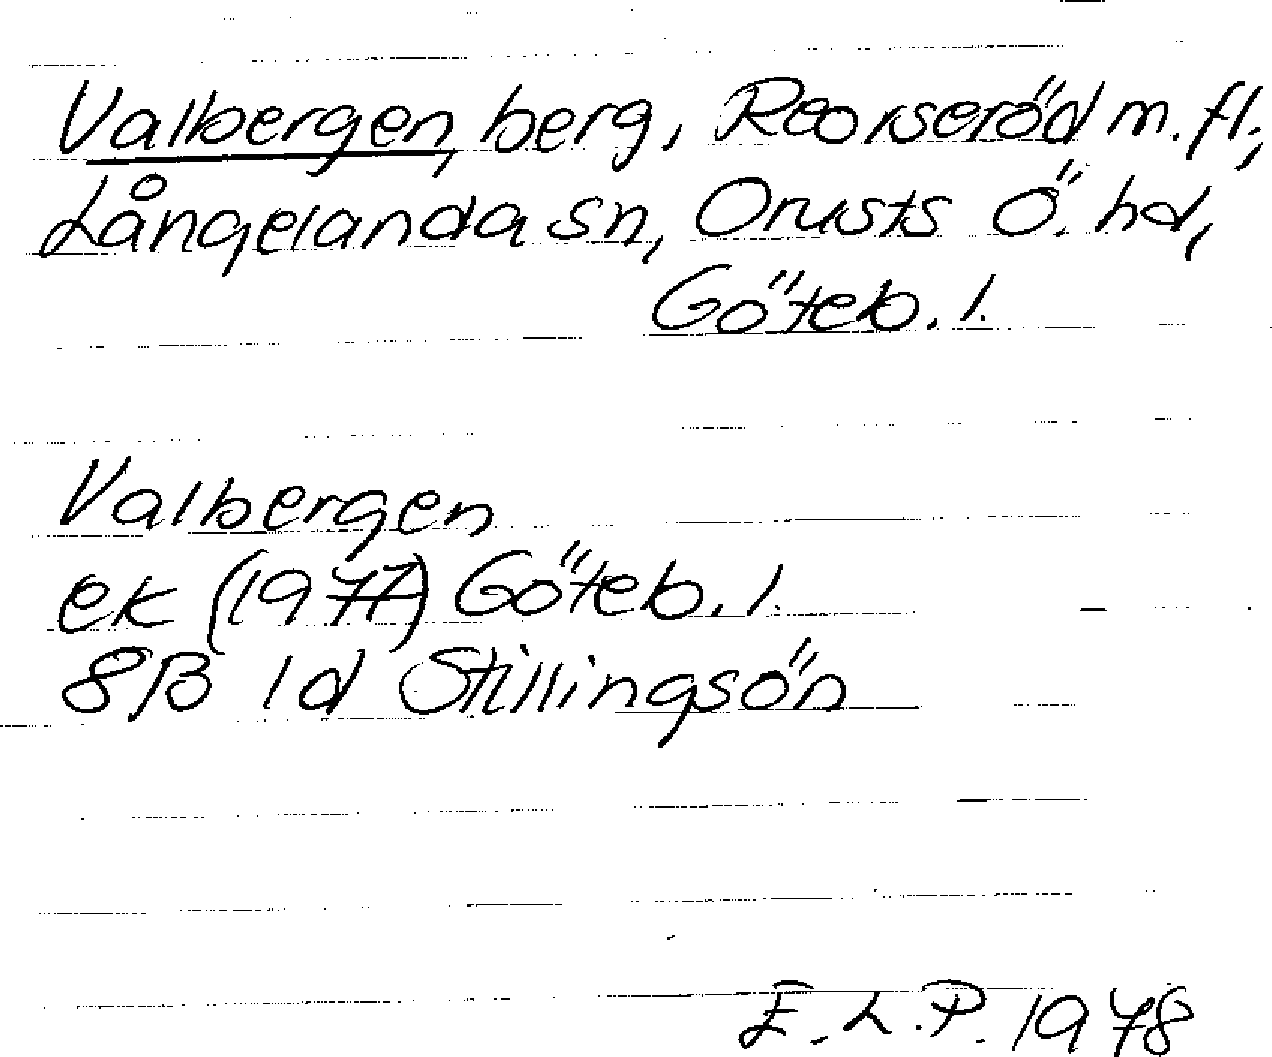 Valbergen, berg, Reorseröd m. fl.,
Långelanda sn, Orusts Ö. hd,
Göteb. l.
Valbergen
ek (1977) Göteb. l.
8B 1d Stillingsön
E. L. P. 1978